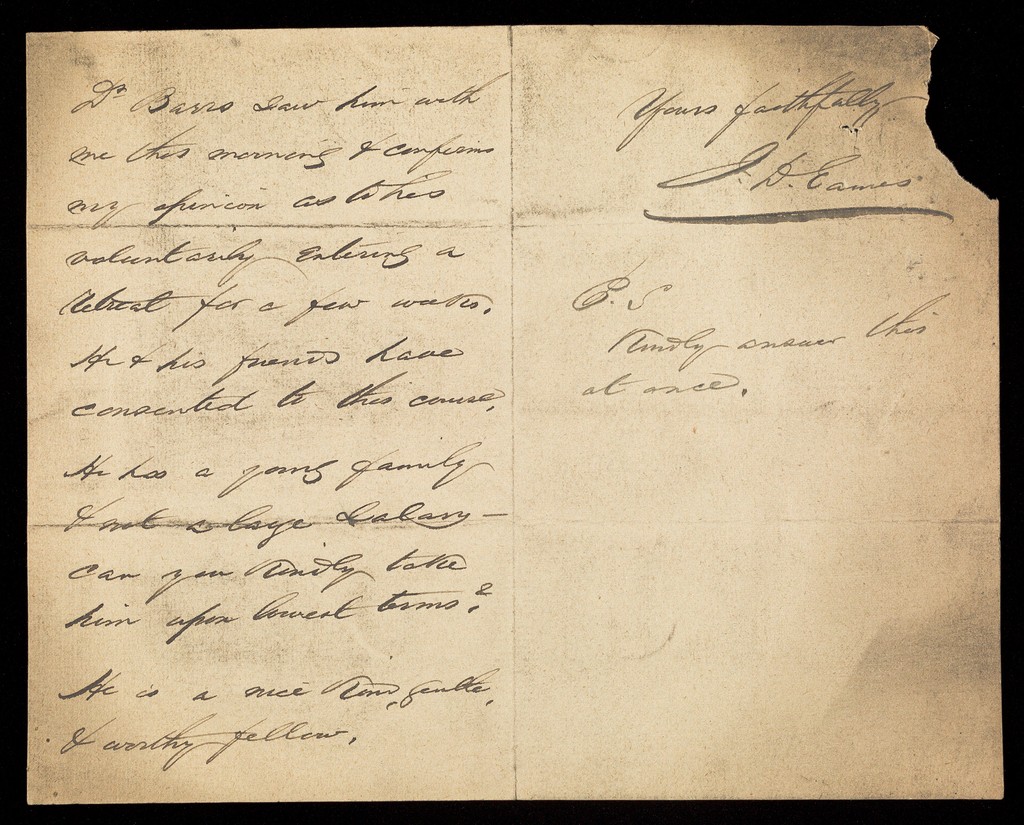 Dr Barrs saw him with
me this morning & confirms
my opinion as to his
voluntarily entering a
retreat for a few weeks.
He & his friends have
consented to this course.
He has a young family
& not a large salary —
can you kindly take
him upon lowest terms?
He is a nice kind, gentle,
& worthy fellow.
Yours faithfully
J. D. Eames
P. S
Kindly answer this
at once.